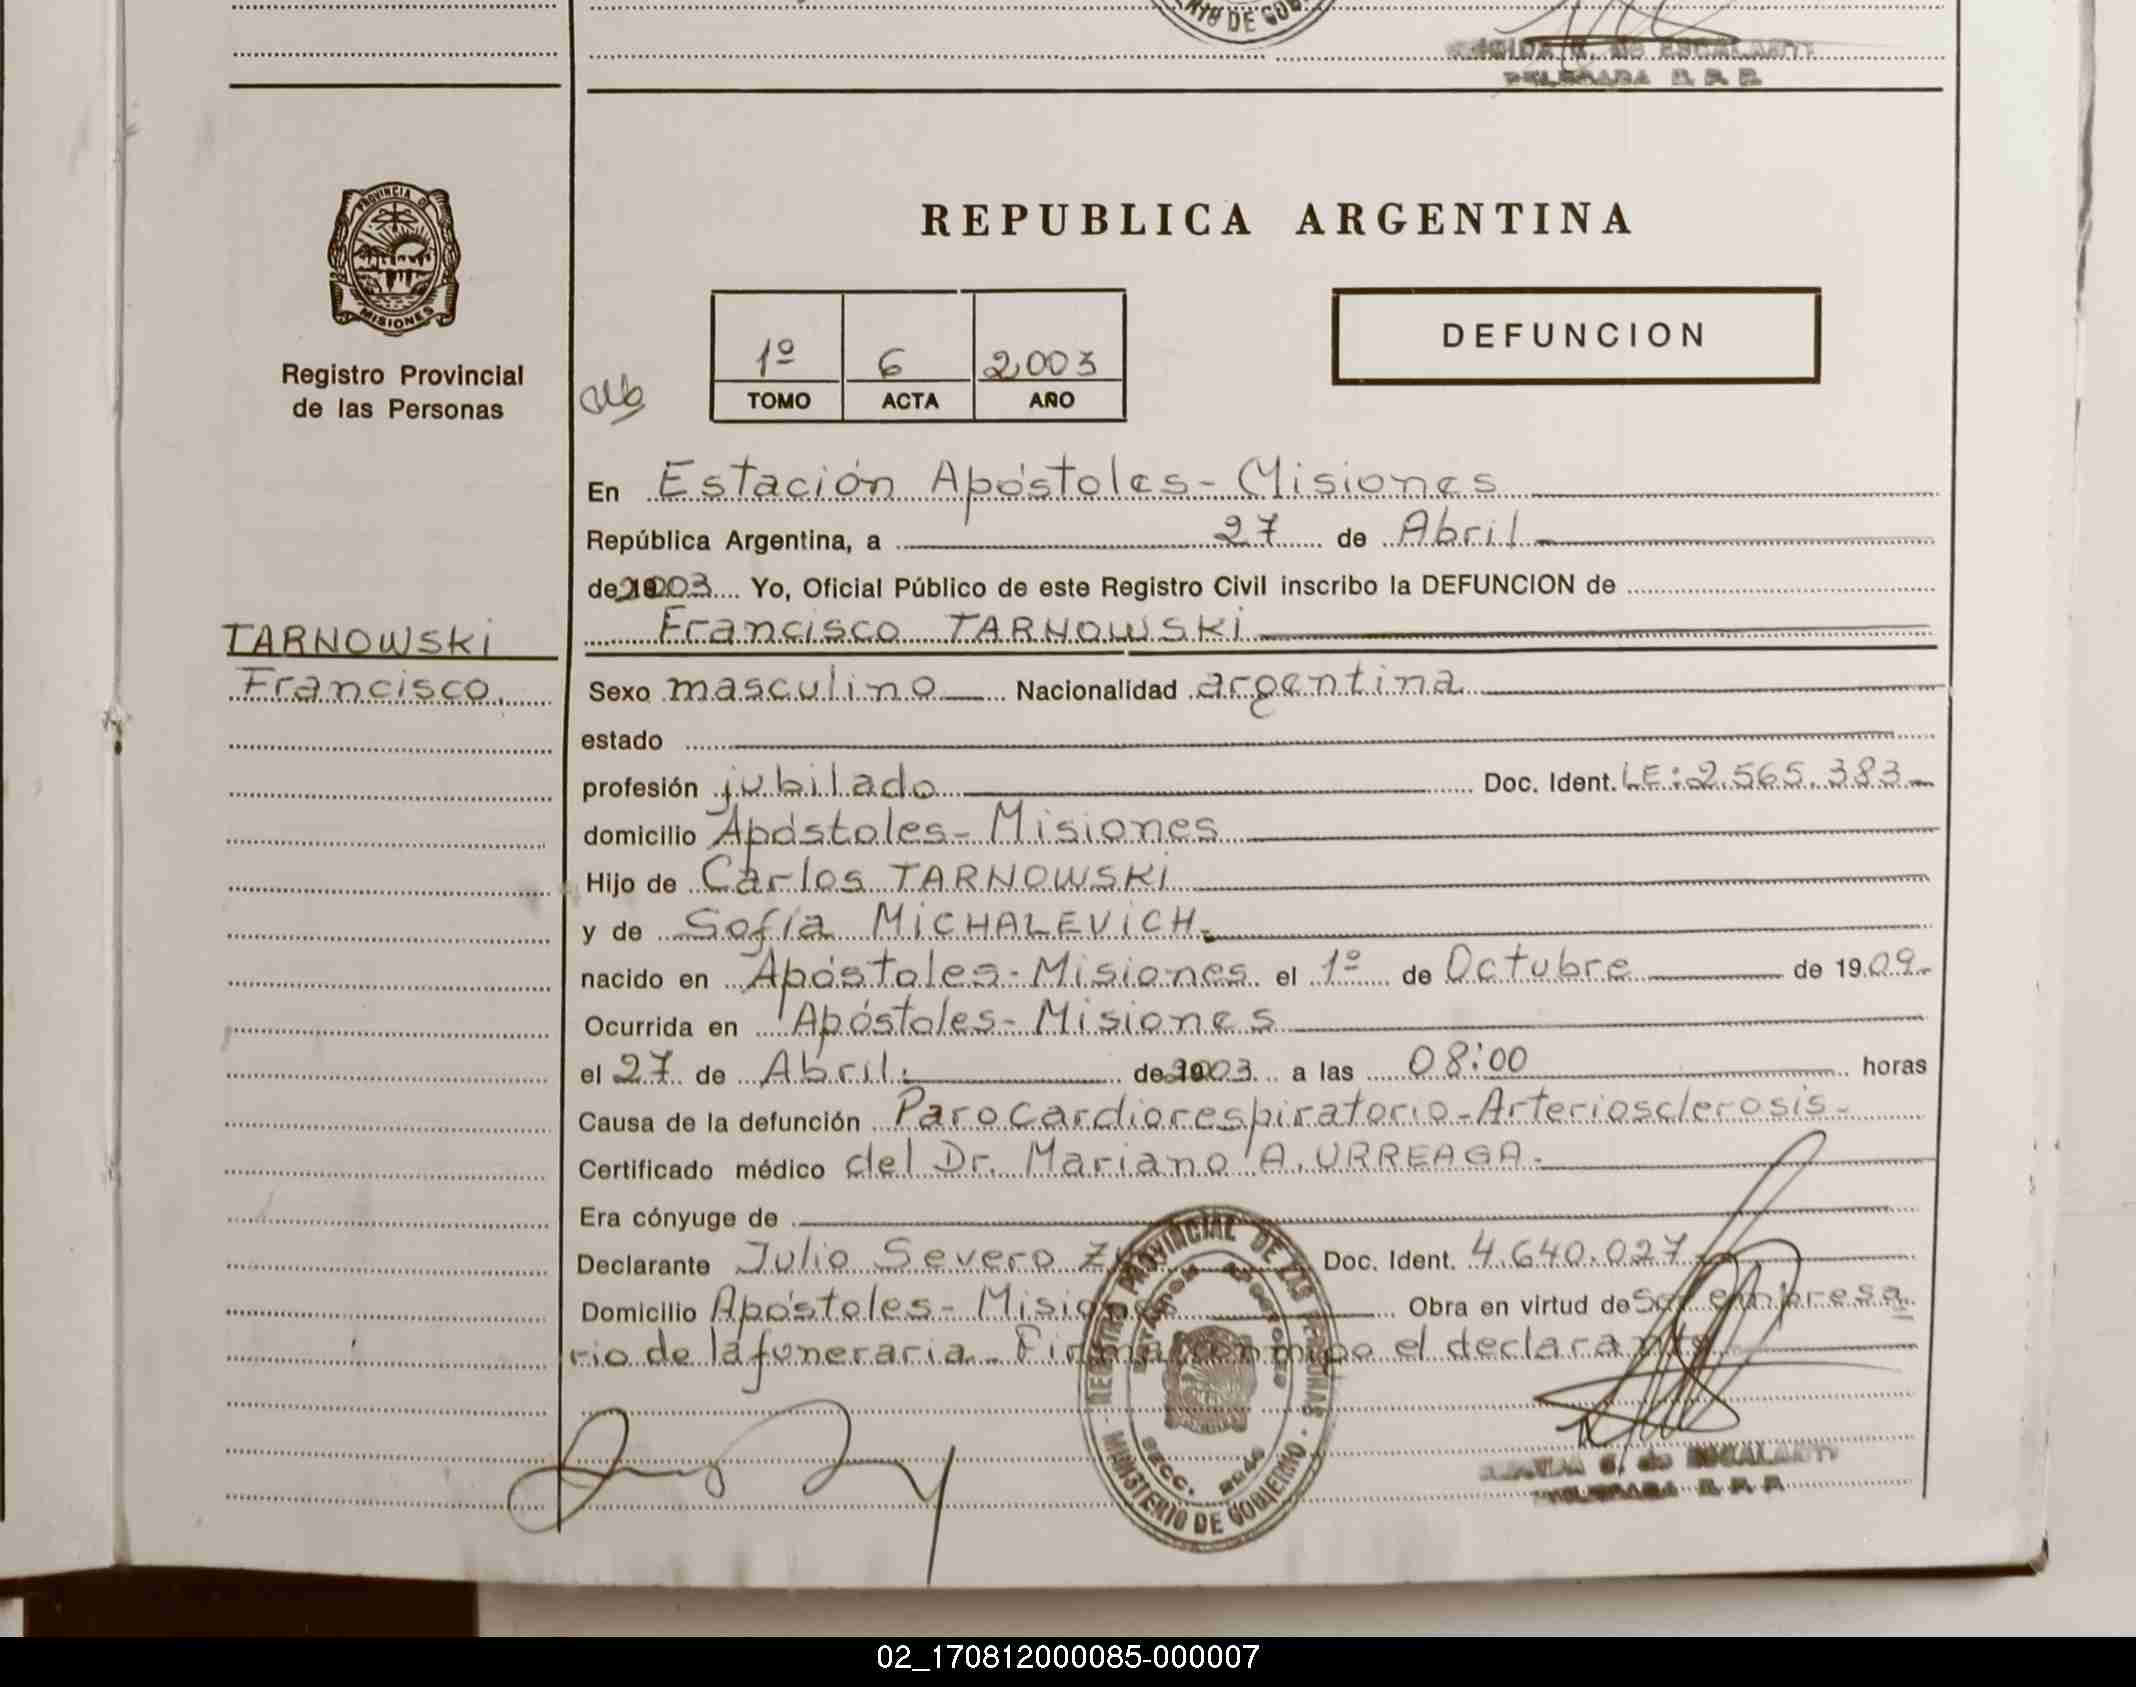 NTO DE GOB
DELEGADA R. P. P.
PROVINCIA DE
MISIONES
Registro Provincial
de las Personas
REPUBLICA ARGENTINA
1º 6 2003
TOMO ACTA AÑO
DEFUNCION
En Estación Apóstoles - Misiones
República Argentina, a 27 de Abril
de 2003 Yo, Oficial Público de este Registro Civil inscribo la DEFUNCION de
Francisco TARNOWSKI
TARNOWSKI
Francisco.
Sexo masculino Nacionalidad argentina
estado
profesión jubilado Doc. Ident. LE: 2.565.383-
domicilio Apóstoles - Misiones
Hijo de Carlos TARNOWSKI
y de Sofía MICHALEVICH.
nacido en Apóstoles - Misiones el 1º de Octubre de 1909-
Ocurrida en Apóstoles - Misiones
el 27 de Abril. de 2003 a las 08:00 horas
Causa de la defunción Parocardiorespiratorio - Arteriosclerosis-
Certificado médico del Dr. Mariano A. URREAGA-
Era cónyuge de
Declarante Julio Severo Doc. Ident. 4.640.027
Domicilio Apóstoles - Misiones Obra en virtud de Ser empresa
rio de la funeraria - Firma conmigo el declarante
REGISTRO PROVINCIAL DE LAS PERSONAS
MINISTERIO DE GOBIERNO
G. de ESCALANTE
DELEGADA R. P. P.
02_170812000085-000007